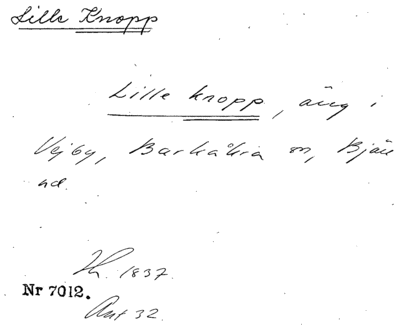 Lilla Knopp
Lille knopp, äng i
Vejby, Barkåkra sn, Bjäre
hd.
Th. 1837.
Nr 7012.
Akt 32.